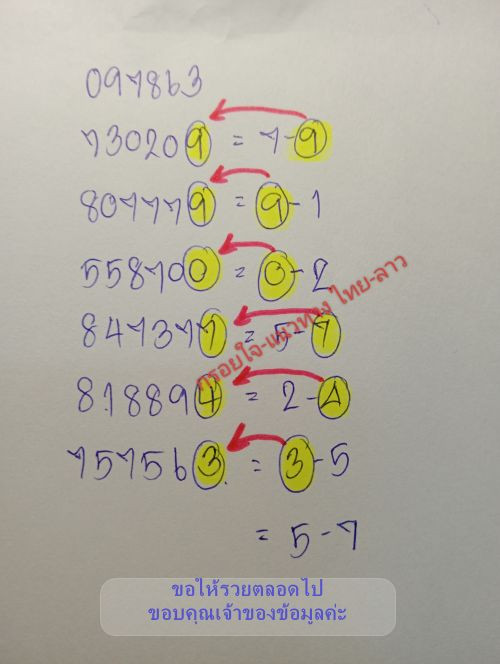 097863
730209 = 7-9
807779 = 9-1
558700 = 0-2
847377 = 5-7
818894 = 2-4
757563 = 3-5
= 5-7
กรอยใจ-แนวทาง ไทย-ลาว
ขอให้รวยตลอดไป
ขอบคุณเจ้าของข้อมูลค่ะ